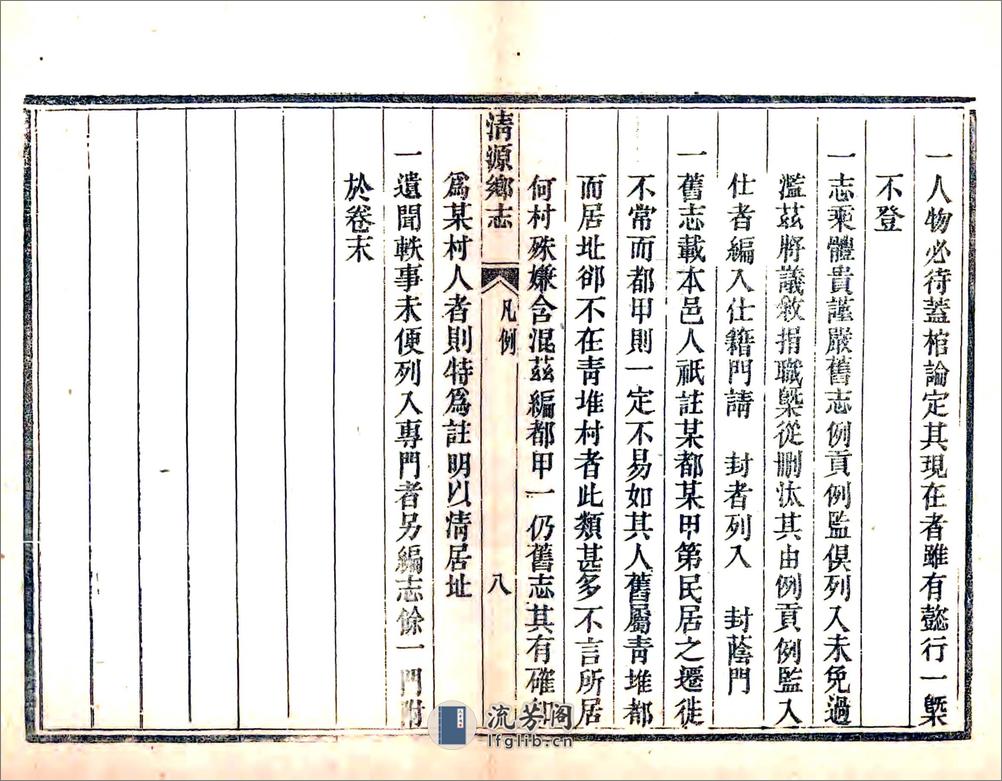 一人物必待蓋棺論定其現在者雖有懿行一槩
不登
一志乘體貴謹嚴舊志例貢例監俱列入未免過
濫茲將議敘捐職槩從刪汰其由例貢例監入
仕者編入仕籍門請　封者列入　封蔭門
一舊志載本邑人祇註某都某甲第民居之遷徙
不常而都甲則一定不易如其人舊屬靑堆都
而居址卻不在靑堆村者此類甚多不言所居
何村殊嫌含混茲編都甲一仍舊志其有確知
清源鄉志　凡例　八
爲某村人者則特爲註明以清居址
一遺聞軼事未便列入專門者另編志餘一門附
於卷末
流芳閣
lfglib.cn